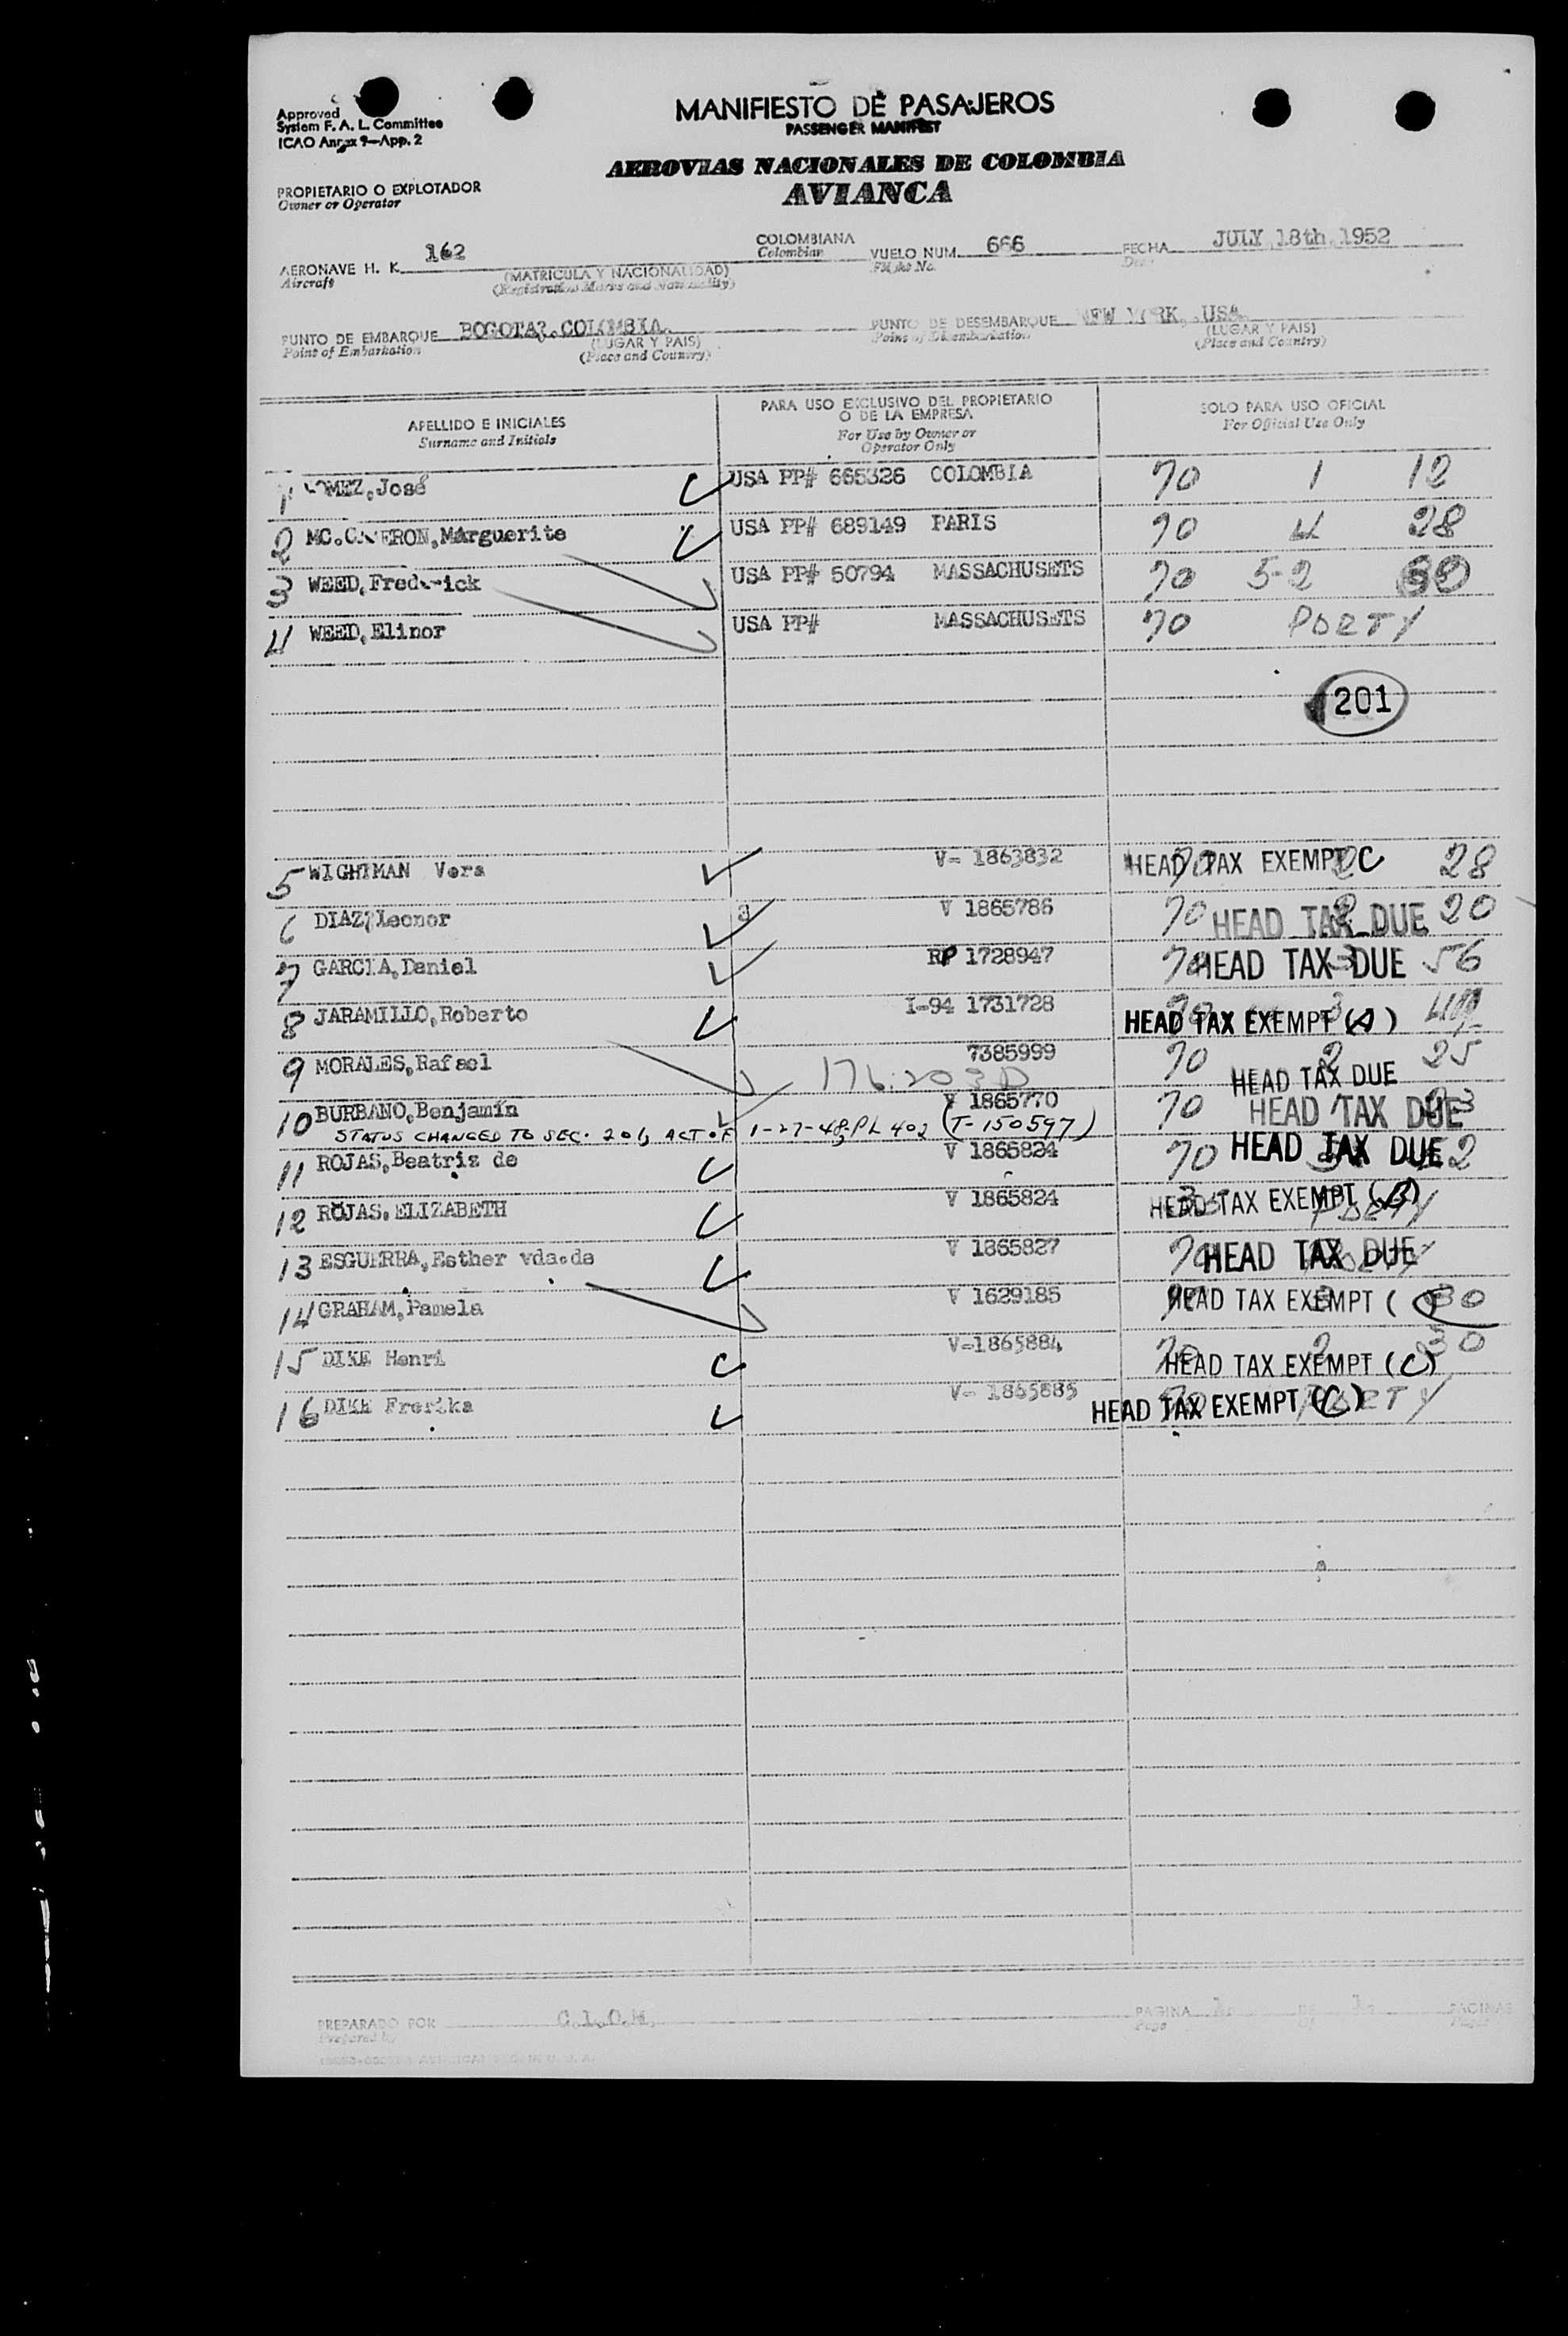 Approved
System F. A. L. Committee
ICAO Annex 9—App. 2
MANIFIESTO DE PASAJEROS
PASSENGER MANIFEST
AEROVIAS NACIONALES DE COLOMBIA
AVIANCA
PROPIETARIO O EXPLOTADOR
Owner or Operator
AERONAVE H. K. 162 COLOMBIANA VUELO NUM. 666 FECHA JULY 18th 1952
Aircraft (MATRICULA Y NACIONALIDAD) Colombian
(Registration Marks and Nationality)
PUNTO DE EMBARQUE BOGOTA?. COLOMBIA. PUNTO DE DESEMBARQUE NEW YORK, USA
Point of Embarkation (LUGAR Y PAIS) Point of Disembarkation (LUGAR Y PAIS)
(Place and Country) (Place and Country)
APELLIDO E INICIALES PARA USO EXCLUSIVO DEL PROPIETARIO O DE LA EMPRESA SOLO PARA USO OFICIAL
Surname and Initials For Use by Owner or Operator Only For Official Use Only
1 GOMEZ, José USA PP# 665326 COLOMBIA 70 1 12
2 MC. ERON, Marguerite USA PP# 689149 PARIS 70 4 28
3 WEED, Fred ick USA PP# 50794 MASSACHUSETS 70 5-2
4 WEED, Elinor USA PP# MASSACHUSETS 70 PORTY
201
5 WIGHTMAN Vera V- 1863832 HEAD TAX EXEMPT C 28
6 DIAZ, Leonor V 1865786 70 HEAD TAX DUE 20
7 GARCIA, Daniel RP 1728947 70 HEAD TAX DUE 56
8 JARAMILLO, Roberto I-94 1731728 HEAD TAX EXEMPT (A)
9 MORALES, Rafael 7385999 70 2 25 HEAD TAX DUE
10 BURBANO, Benjamín V 1865770 70 HEAD TAX DUE
STATUS CHANGED TO SEC. 201, ACT OF 1-27-48, PL 402 (T-150597)
11 ROJAS, Beatriz de V 1865824 70 HEAD TAX DUE
12 ROJAS, ELIZABETH V 1865824 HEAD TAX EXEMPT (B)
13 ESGUERRA, Esther vda. de V 1865827 70 HEAD TAX DUE
14 GRAHAM, Pamela V 1629185 HEAD TAX EXEMPT ( 30
15 DIKE Henri V-1865884 70 2 30 HEAD TAX EXEMPT (C)
16 DIKE Frerika V- 1865885 HEAD TAX EXEMPT (C) PORTY
PREPARADO POR C.L.O.M. PAGINA PAGINAS
Prepared by Page